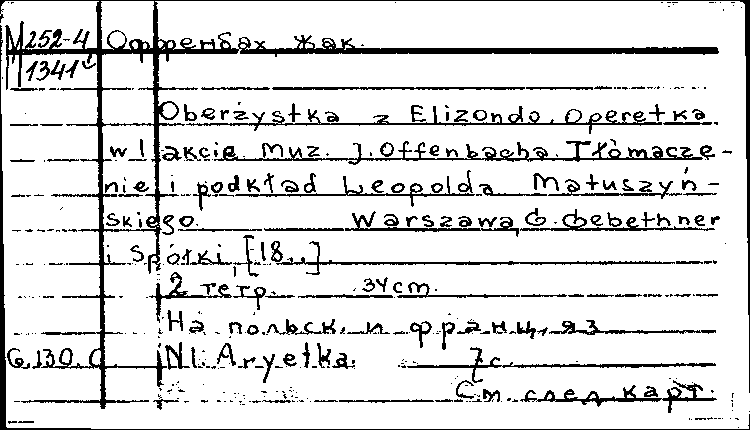 М 252-4 Оффенбах, Жак.
1341
Oberżystka z Elizondo. Operetka
w 1 akcie. Muz. J. Offenbacha. Tłómacze-
nie i podkład Leopolda Matuszyń-
skiego. Warszawa, G. Gebethner
i Spółki, [18..].
2 тетр. 34 cm.
На польск. и франц. яз.
G.130.C. N1. Aryetka. 7 с.
См. след. карт.